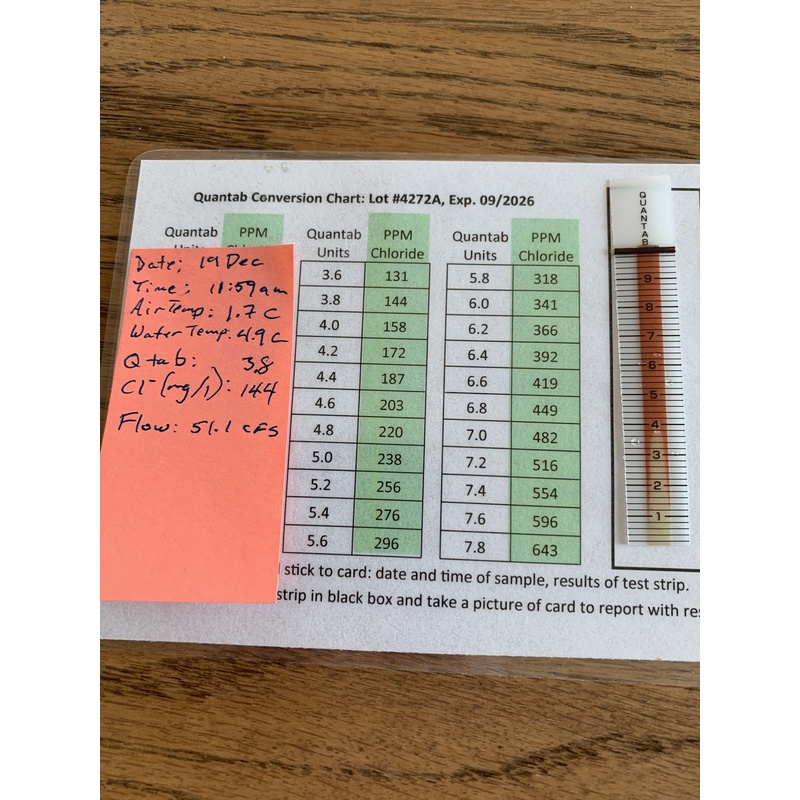 Quantab Conversion Chart: Lot #4272A, Exp. 09/2026
Quantab PPM
Quantab Units PPM Chloride
3.6 131
3.8 144
4.0 158
4.2 172
4.4 187
4.6 203
4.8 220
5.0 238
5.2 256
5.4 276
5.6 296
Quantab Units PPM Chloride
5.8 318
6.0 341
6.2 366
6.4 392
6.6 419
6.8 449
7.0 482
7.2 516
7.4 554
7.6 596
7.8 643
Date: 19 Dec
Time: 11:59am
Air Temp: 1.7 C
Water Temp: 4.9 C
Qtab: 3.8
Cl- (mg/l): 144
Flow: 51.1 cfs
QUANTAB
9
8
7
6
5
4
3
2
1
stick to card: date and time of sample, results of test strip.
strip in black box and take a picture of card to report with